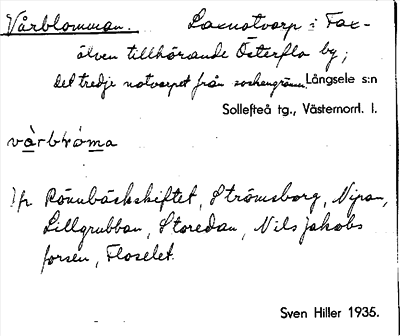 Vårblomman. Laxnotvarp i Fax-
älven tillhörande Österflo by;
det tredje notvarpet från sockengränsen. Långsele s:n
Sollefteå tg., Västernorrl. l.
vårbloma
Jfr Rönnbäckskiftet, Strömsborg, Nipan,
Lillgrubban, Storedan, Nils Jakobs
forsen, Floselet.
Sven Hiller 1935.